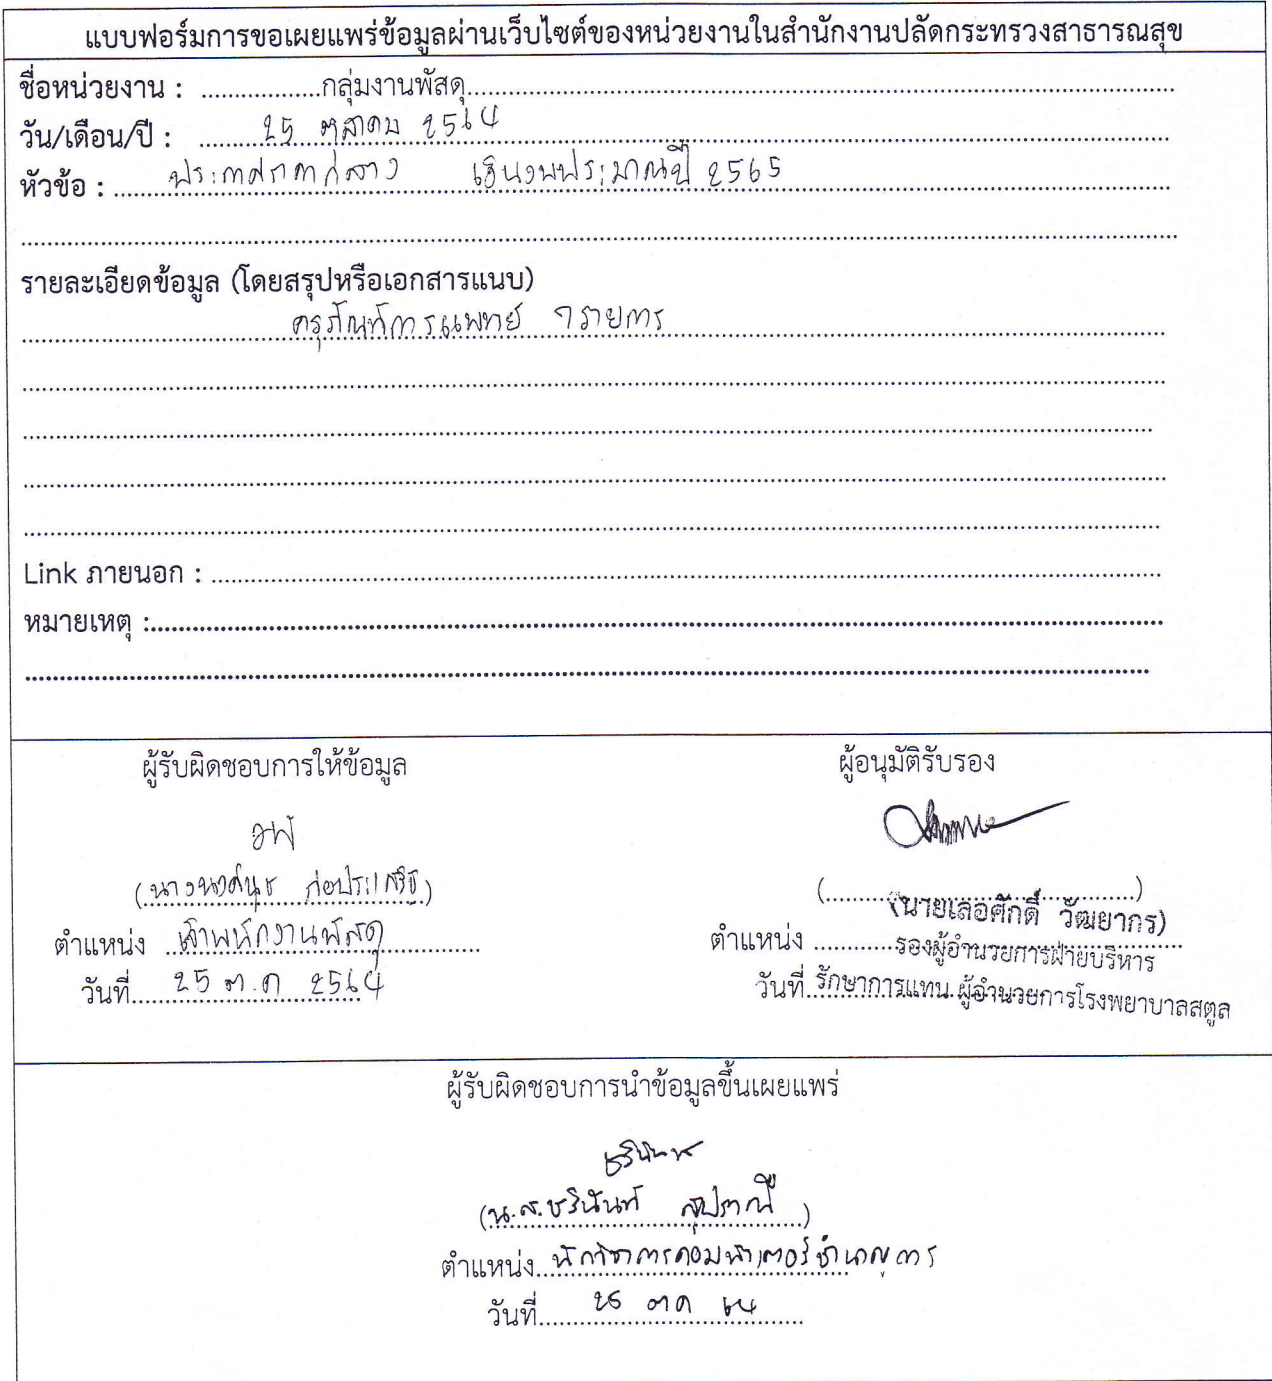 แบบฟอร์มการขอเผยแพร่ข้อมูลผ่านเว็บไซต์ของหน่วยงานในสำนักงานปลัดกระทรวงสาธารณสุข
ชื่อหน่วยงาน : ..................กลุ่มงานพัสดุ
วัน/เดือน/ปี : 25 ตุลาคม 2564
หัวข้อ : ประกาศราคากลาง เงินงบประมาณปี 2565
รายละเอียดข้อมูล (โดยสรุปหรือเอกสารแนบ)
ครุภัณฑ์การแพทย์ 7 รายการ
Link ภายนอก :
หมายเหตุ :
ผู้รับผิดชอบการให้ข้อมูล ผู้อนุมัติรับรอง
(นาง ก่อประเสริฐ) (นายเลอศักดิ์ วัฒยากร)
ตำแหน่ง เจ้าพนักงานพัสดุ ตำแหน่ง รองผู้อำนวยการฝ่ายบริหาร
วันที่ 25 ต.ค 2564 วันที่ รักษาการแทน ผู้อำนวยการโรงพยาบาลสตูล
ผู้รับผิดชอบการนำข้อมูลขึ้นเผยแพร่
(น.ส.ชรินันท์ สุปราณี)
ตำแหน่ง นักวิชาการคอมพิวเตอร์ชำนาญการ
วันที่ 25 ตค 64